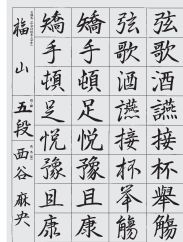 弦歌酒讌接杯舉觴
弦歌酒讌接杯举觴
矯手頓足悦豫且康
矯手頓足悦豫且康
福山 五段 西谷麻央